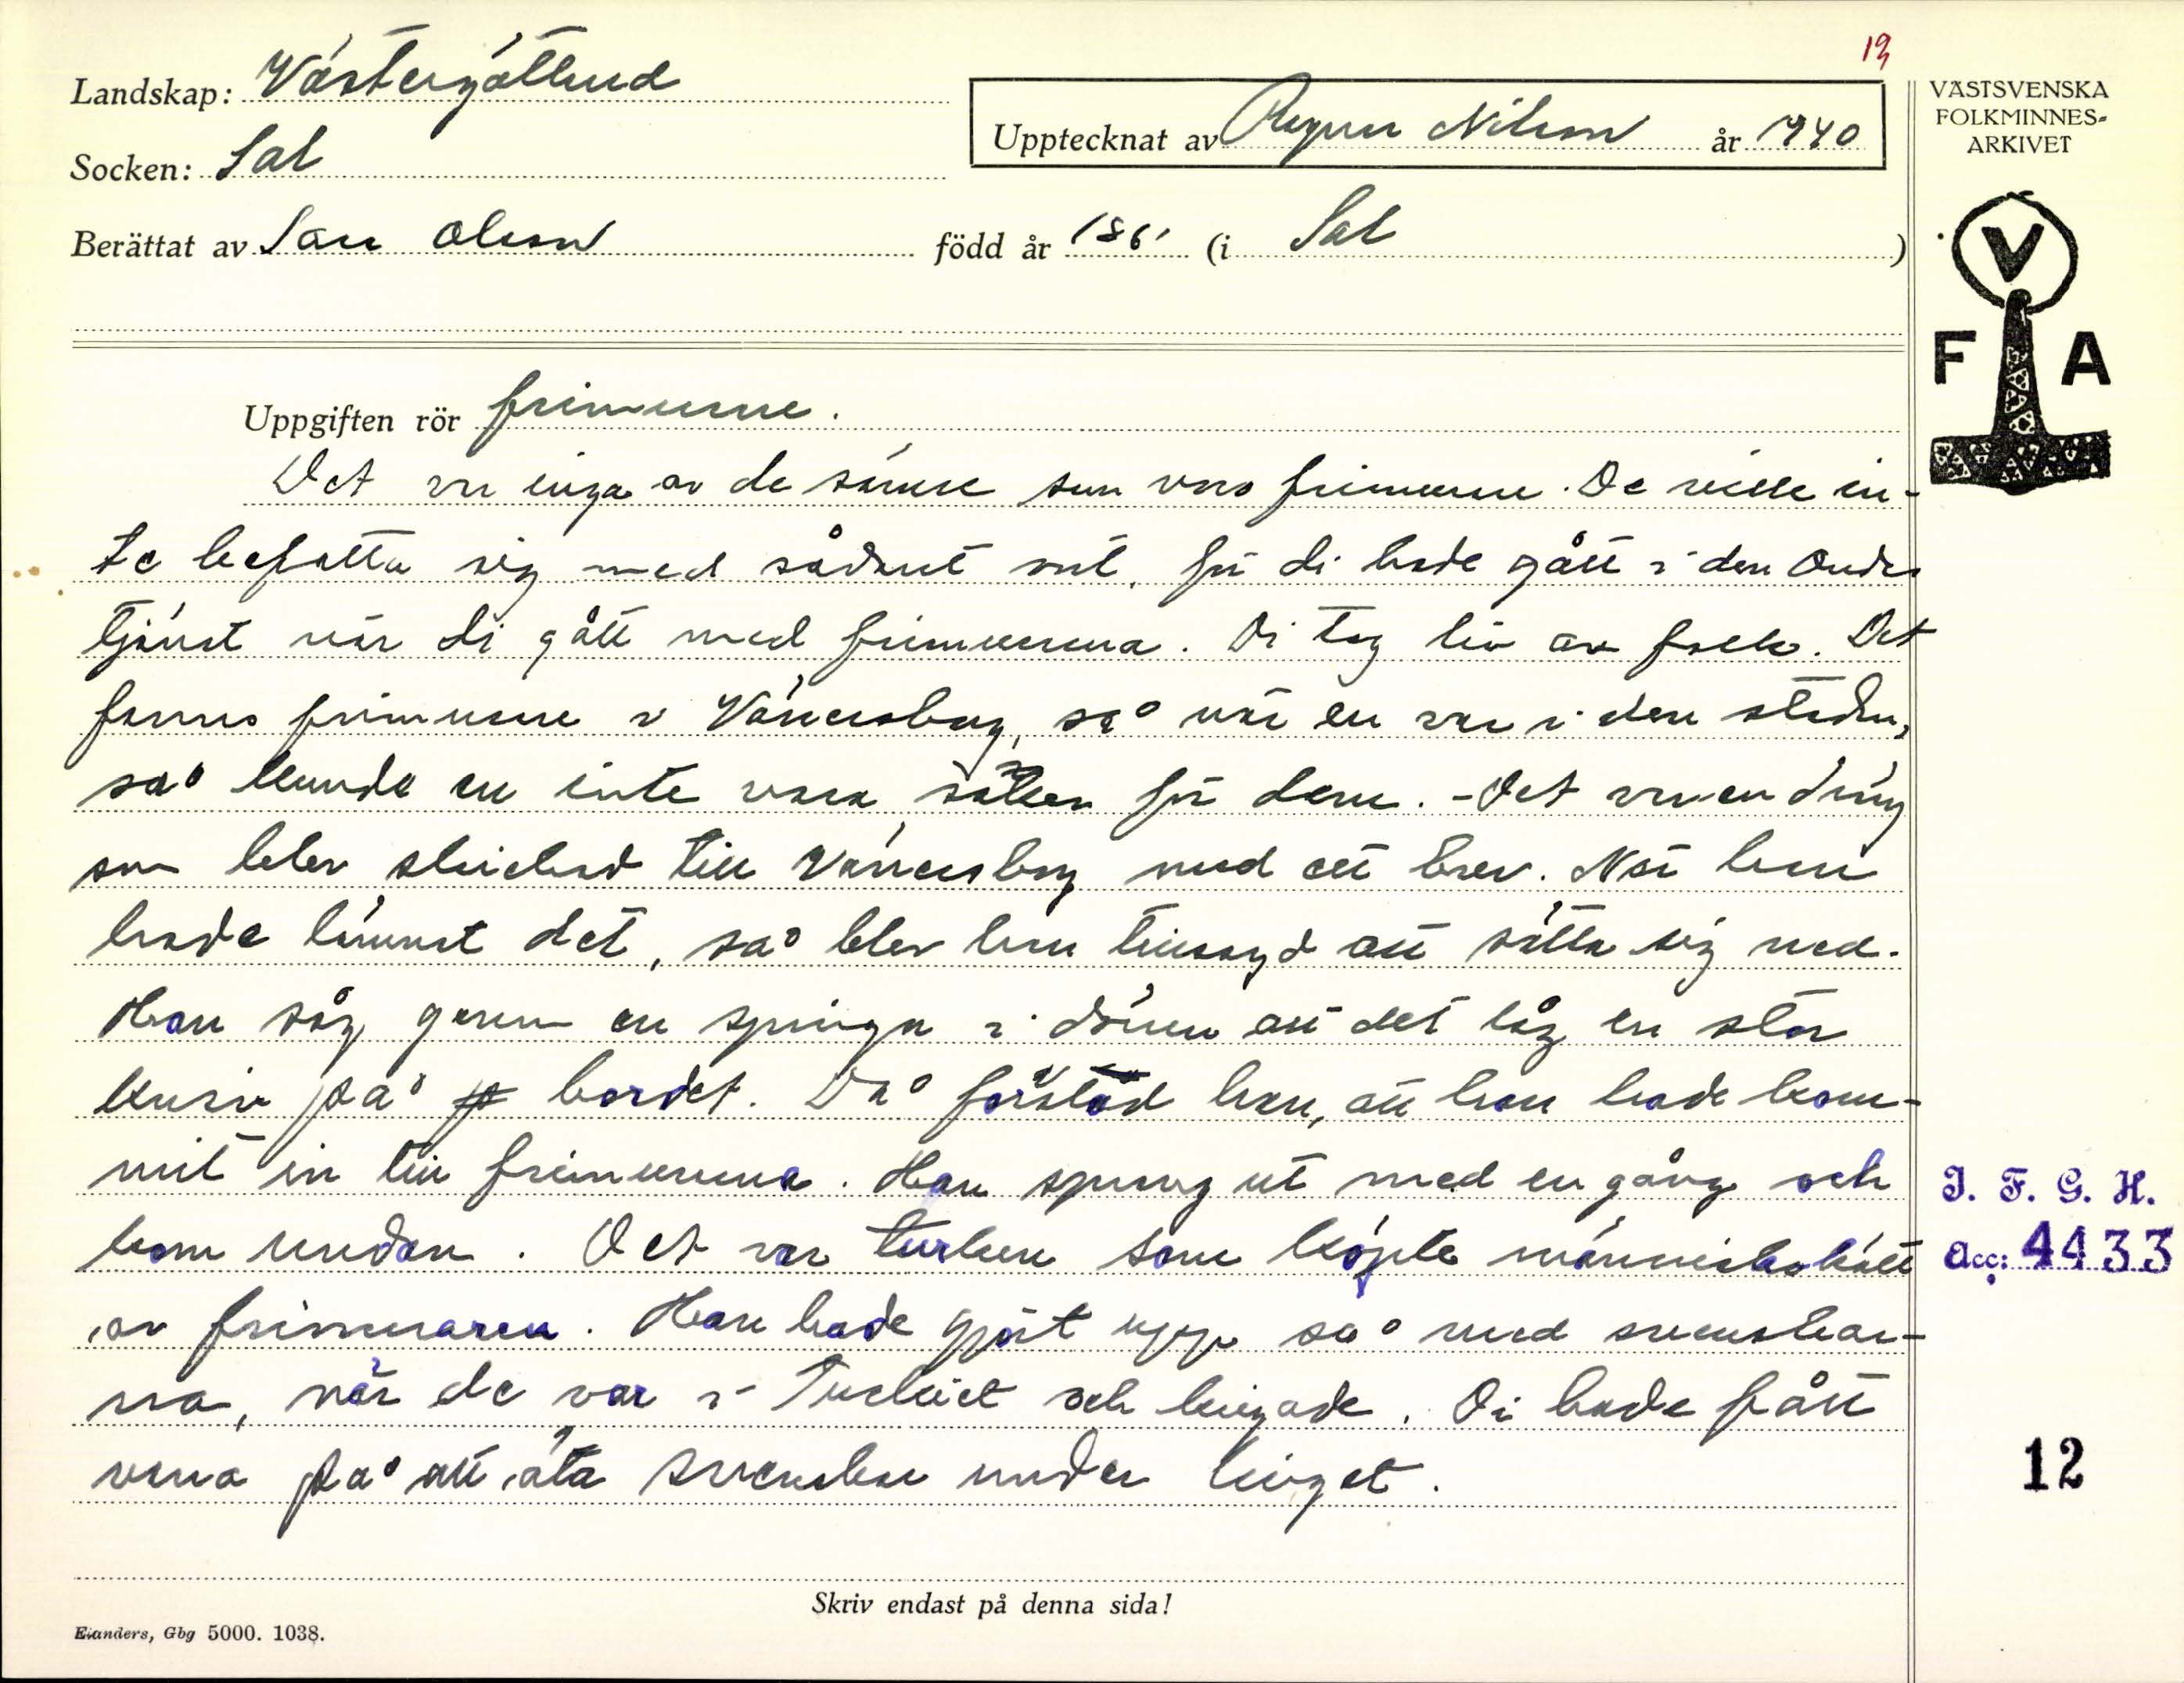 19
Landskap: Västergötland
Upptecknat av Ragnar Nilsson år 1940
Socken: Sal
Berättat av Lars Olsson född år 1861 (i Sal)
VÄSTSVENSKA
FOLKMINNES-
ARKIVET
V
F A
Uppgiften rör frimurare.
Det var inga av de sämre som vore frimurare. De ville in-
te befatta sig med sådant möt, för di hade gått i den Ondes
tjänst när di gått med frimurarna. Di tog liv av folk. Det
fanns frimurare i Vänersborg, så når en var i den staden,
så kunde en inte vara säker för dem. - Det var en dräng
som blev skickad till Vänersborg med ett brev. När han
hade lämnat det, så blev han tillsagd att sätta sig ned.
Han såg genom en springa i dörren att det låg en stor
kniv på bordet. Då förstod han, att han hade kom-
mit in till frimurarna. Han sprang ut med en gång och
kom undan. Det var turken som köpte människokött
av frimuraren. Han hade gjort upp så med svenskar-
na, när de var i Turkiet och krigade. Di hade fått
vana på att äta svenskar under kriget.
I. F. G. H.
Acc: 4433
12
Skriv endast på denna sida!
Elanders, Gbg 5000. 1038.